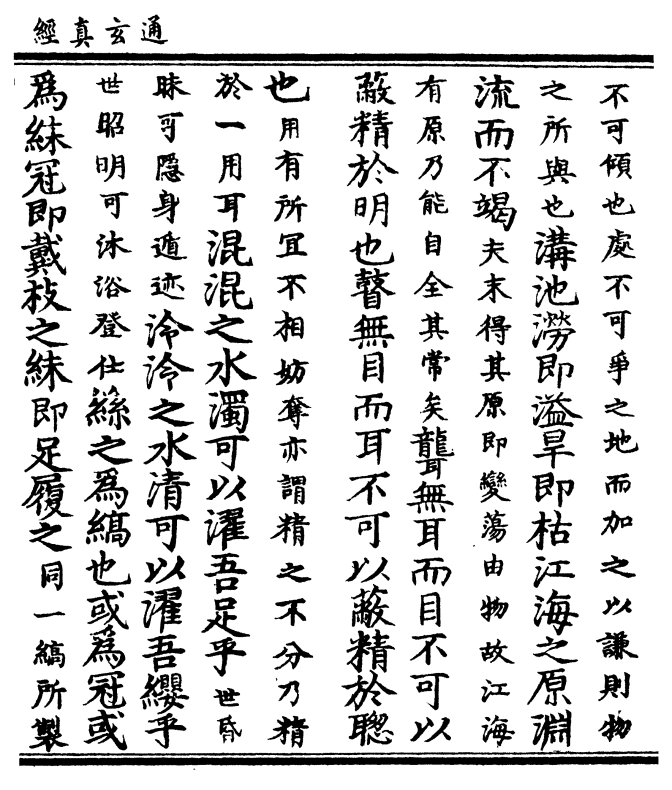 通玄真經
不可傾也處不可爭之地而加之以謙則物
之所與也溝池澇即溢旱即枯江海之原淵
流而不竭夫末得其原即變蕩由物故江海
有原乃能自全其常矣聾無耳而目不可以
蔽精於明也瞽無目而耳不可以蔽精於聰
也用有所宜不相妨奪亦謂精之不分乃精
於一用耳混混之水濁可以濯吾足乎世昏
昧可隱身遁迹泠泠之水清可以濯吾纓乎
世昭明可沐浴登仕絲之為縞也或為冠或
為絑冠即戴枝之絑即足履之同一縞所製